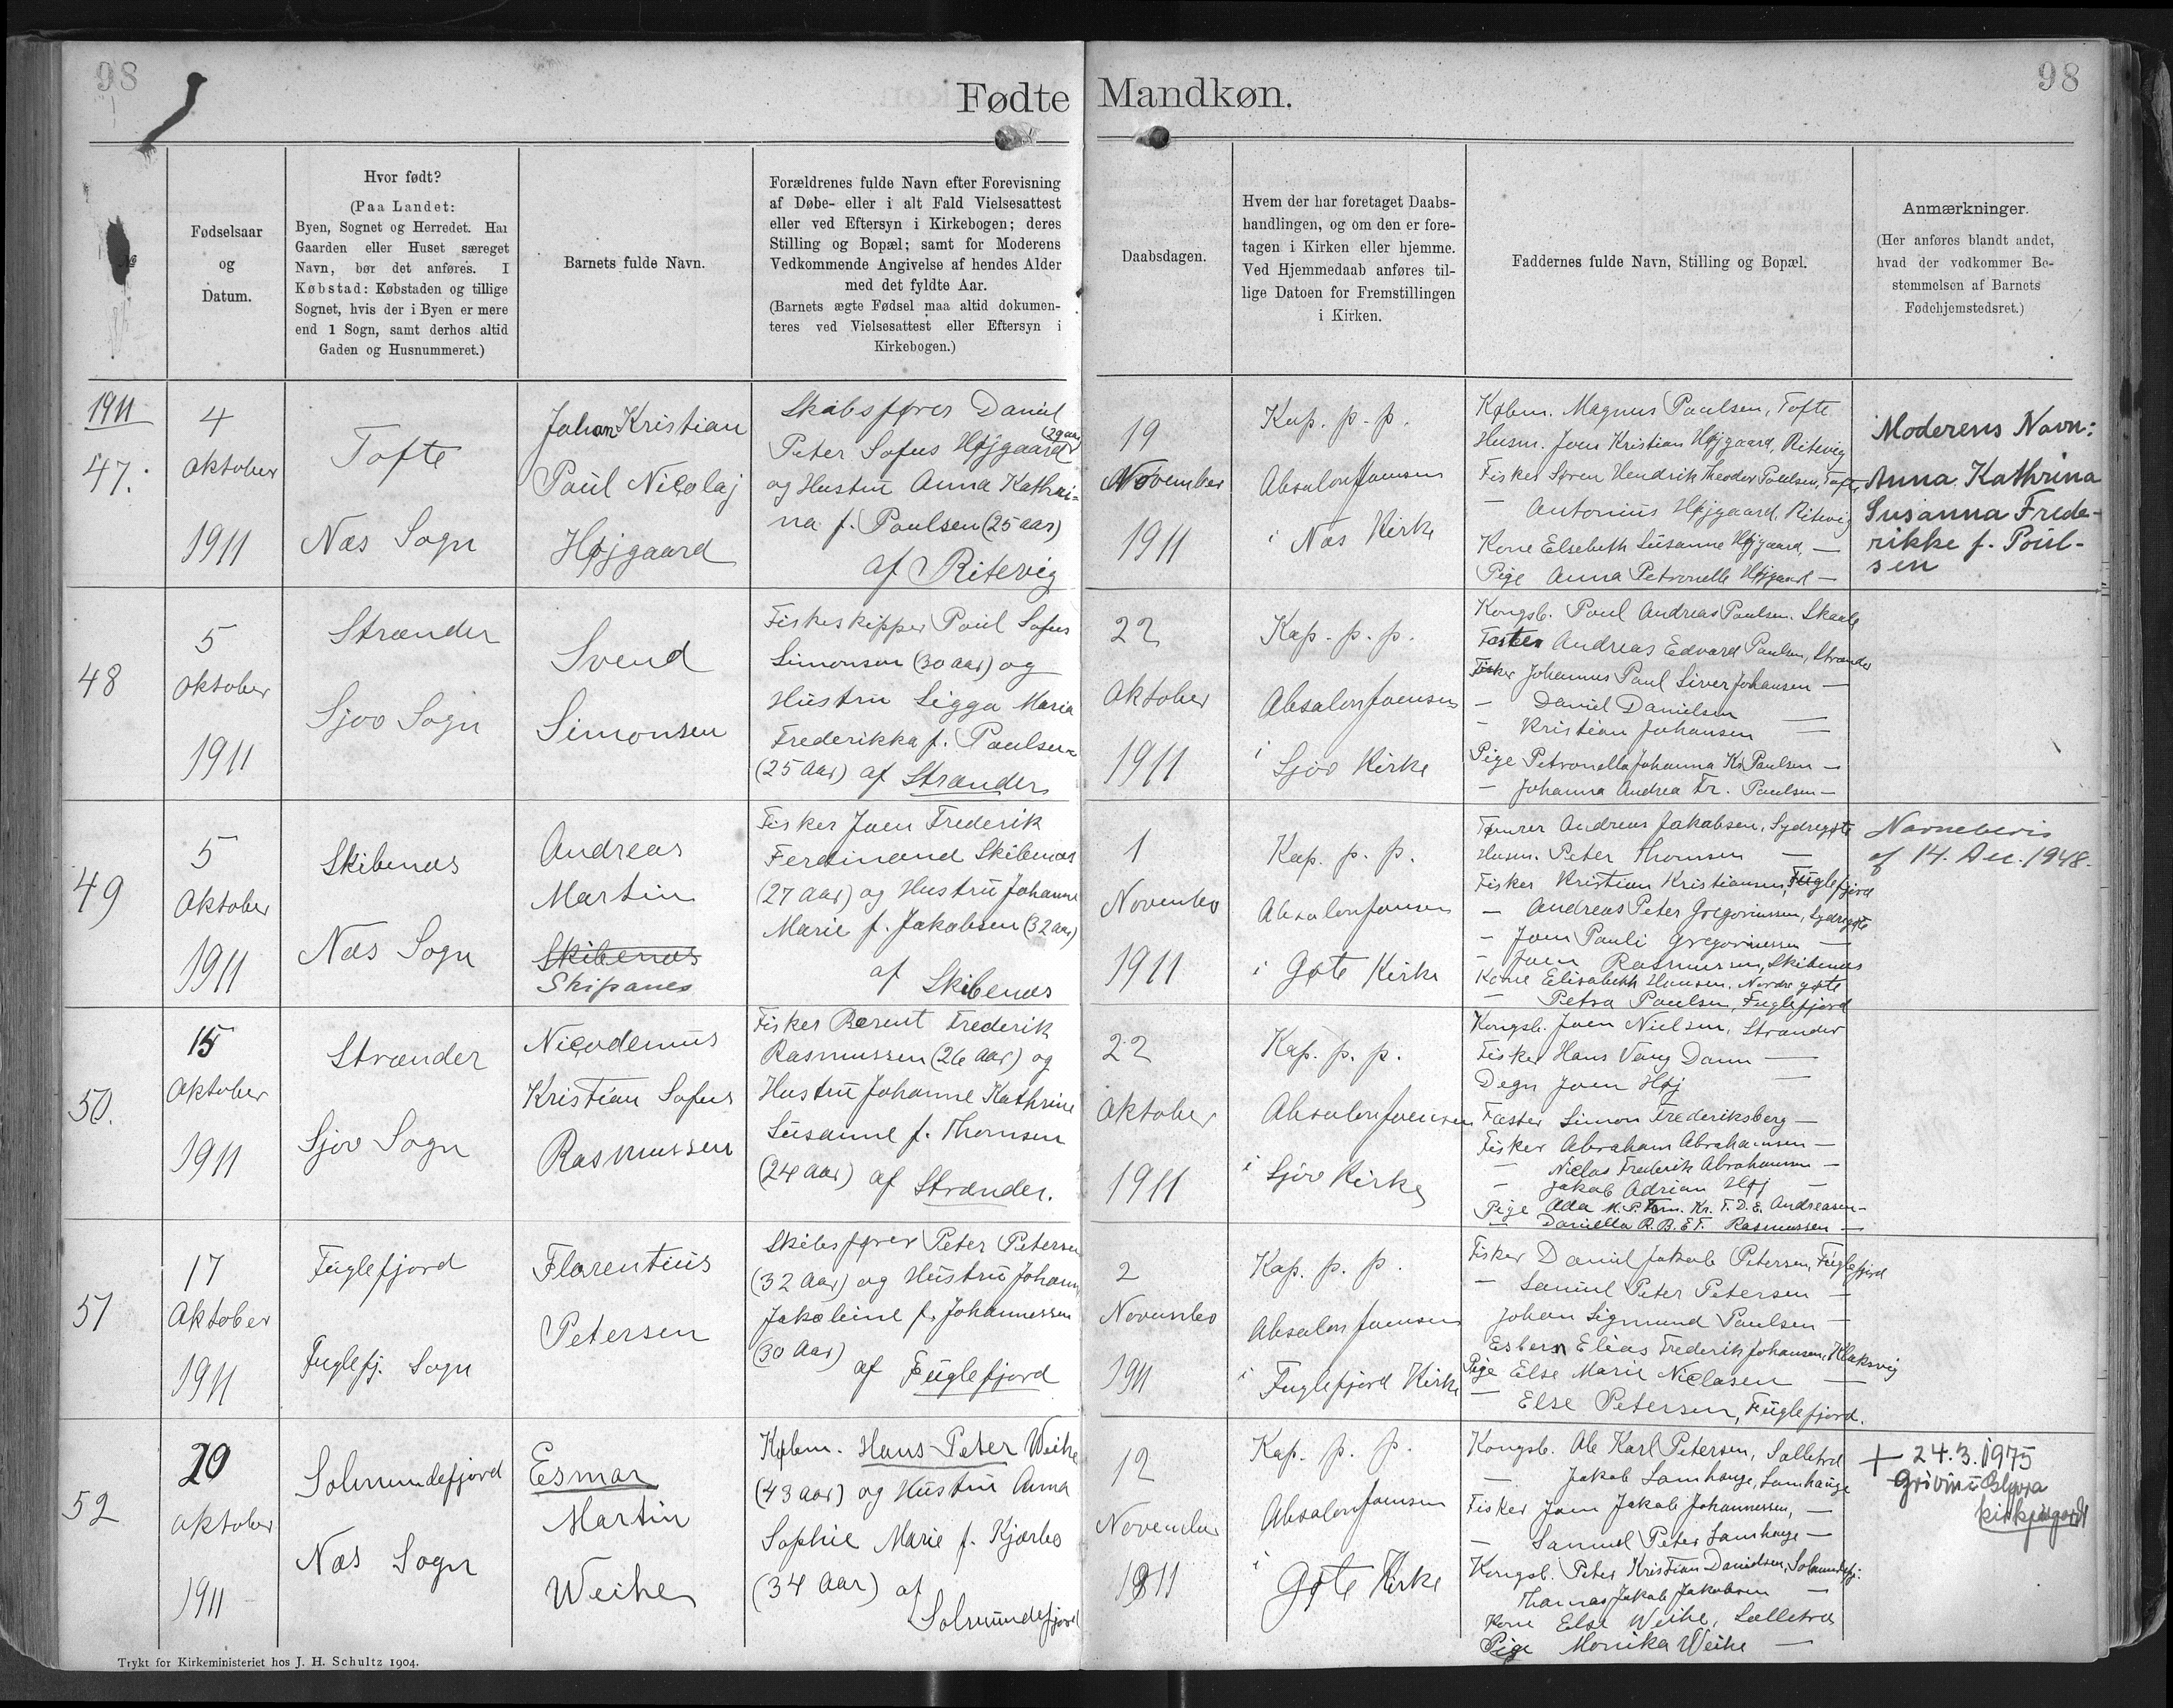 98
98
Fødte Mandkøn.
Fødselsaar
og
Datum.
Hvor født?
(Paa Landet:
Byen, Sognet og Herredet. Har
Gaarden eller Huset særeget
Navn, bør det anføres. I
Købstad: Købstaden og tillige
Sognet, hvis der i Byen er mere
end 1 Sogn, samt derhos altid
Gaden og Husnummeret.)
Barnets fulde Navn.
Forældrenes fulde Navn efter Forevisning
af Døbe- eller i alt Fald Vielsesattest
eller ved Eftersyn i Kirkebogen; deres
Stilling og Bopæl; samt for Moderens
Vedkommende Angivelse af hendes Alder
med det fyldte Aar.
(Barnets ægte Fødsel maa altid dokumen-
teres ved Vielsesattest eller Eftersyn i
Kirkebogen.)
Daabsdagen.
Hvem der har foretaget Daabs-
handlingen, og om den er fore-
tagen i Kirken eller hjemme.
Ved Hjemmedaab anføres til-
lige Datoen for Fremstillingen
i Kirken.
Faddernes fulde Navn, Stilling og Bopæl.
Anmærkninger.
(Her anføres blandt andet,
hvad der vedkommer Be-
stemmelsen af Barnets
Fødehjemstedsret.)
1911
47.
4
Oktober
1911
Tofte
Næs Sogn
Johan Kristian
Poul Nicolaj
Højgaard
Skibsfører Daniel
(29 aar)
Peter Sofus Højgaard
og Hustru Anna Kathri-
na f. Poulsen (25 aar)
af Ritevig
19
November
1911
Kap. p. p.
Absalon Joensen
i Næs Kirke
Købm. Magnus Poulsen, Tofte
Husm. Joen Kristian Højgaard, Ritevig
Fisker Søren Hendrik Theodor Poulsen, Tofte
— Antonius Højgaard, Ritevig
Kone Elsebeth Susanne Højgaard —
Pige Anna Petronelle Højgaard —
Moderens Navn:
Anna Kathrina
Susanna Frede-
rikke f. Poul-
sen
48
5
Oktober
1911
Strænder
Sjov Sogn
Svend
Simonsen
Fiskeskipper Poul Sofus
Simonsen (30 aar) og
Hustru Sigga Maria
Frederikka f. Poulsen
(25 Aar) af Strænder
22
Oktober
1911
Kap. p. p.
Absalon Joensen
i Sjov Kirke
Kongsb. Poul Andreas Poulsen, Skaale
Fæster Andreas Edvard Poulsen, Strænder
Fisker Johannes Poul Siver Johansen —
— Daniel Danielsen —
— Kristian Johansen —
Pige Petronella Johanna Kr. Poulsen —
— Johanna Andrea Fr. Poulsen —
49
5
Oktober
1911
Skibenæs
Næs Sogn
Andreas
Martin
Skibenæs
Skipanes
Fisker Joen Frederik
Ferdinand Skibenæs
(27 aar) og Hustru Johanne
Marie f. Jakobsen (32 aar)
af Skibenæs
1
Novembr
1911
Kap. p. p.
Absalon Joensen
i Gøte Kirke
Tømrer Andreas Jakobsen, Sydregøte
Husm. Peter Thomsen —
Fisker Kristian Kristiansen, Fuglefjord
— Andreas Peter Gregoriussen, Sydregøte
— Joen Pauli Gregoriussen —
— Joen Rasmussen, Skibenæs
Kone Elisabeth Hansen, Nordregøte
— Petra Poulsen, Fuglefjord
Navnebevis
af 14. Dec. 1948.
50.
15
Oktober
1911
Strænder
Sjov Sogn
Nicodemus
Kristian Sofus
Rasmussen
Fisker Berent Frederik
Rasmussen (26 aar) og
Hustru Johanne Kathrine
Susanne f. Thomsen
(24 aar) af Strænder.
22
Oktober
1911
Kap. p. p.
Absalon Joensen
i Sjov Kirke
Kongsb. Joen Nielsen, Strænder
Fisker Hans Vang Dam —
Degn Joen Høj —
Fæster Simon Frederiksberg —
Fisker Abraham Abrahamsen —
— Niclas Frederik Abrahamsen —
— Jakob Adrian Høj —
Pige Ada M. P. Kr. F. D. E. Andreasen —
— Daniella R. B. E. F. Rasmussen —
51
17
Oktober
1911
Fuglefjord
Fuglefj. Sogn
Florentius
Petersen
Skibsfører Peter Petersen
(32 Aar) og Hustru Johanne
Jakobine f. Johannessen
(30 Aar)
af Fuglefjord
2
Novembr
1911
Kap. p. p.
Absalon Joensen
i Fuglefjord Kirke
Fisker Daniel Jakob Petersen, Fuglefjord
— Samuel Peter Petersen —
Johan Sigmund Poulsen —
Esbern Elias Frederik Johansen, Klaksvig
Pige Else Marie Niclasen —
— Else Petersen, Fuglefjord.
52
20
Oktober
1911
Solmundefjord
Næs Sogn
Esmar
Martin
Weihe
Købm. Hans Peter Weihe
(43 aar) og Hustru Anna
Sophie Marie f. Kjærbo
(34 Aar) af
Solmundefjord
12
November
1911
Kap. p. p.
Absalon Joensen
i Gøte Kirke
Kongsb. Ole Karl Petersen, Selletræ
— Jakob Lamhauge, Lamhauge
Fisker Joen Jakob Johannessen, —
— Samuel Peter Lamhauge —
Kongsb. Peter Kristian Danielsen, Solmundefj.
Thomas Jakob Jakobsen —
Kone Else Weihe, Selletræ
Pige Monika Weihe —
+ 24.3.1975
Grivin í Glyvra
kirkjugarði
Trykt for Kirkeministeriet hos J. H. Schultz 1904.